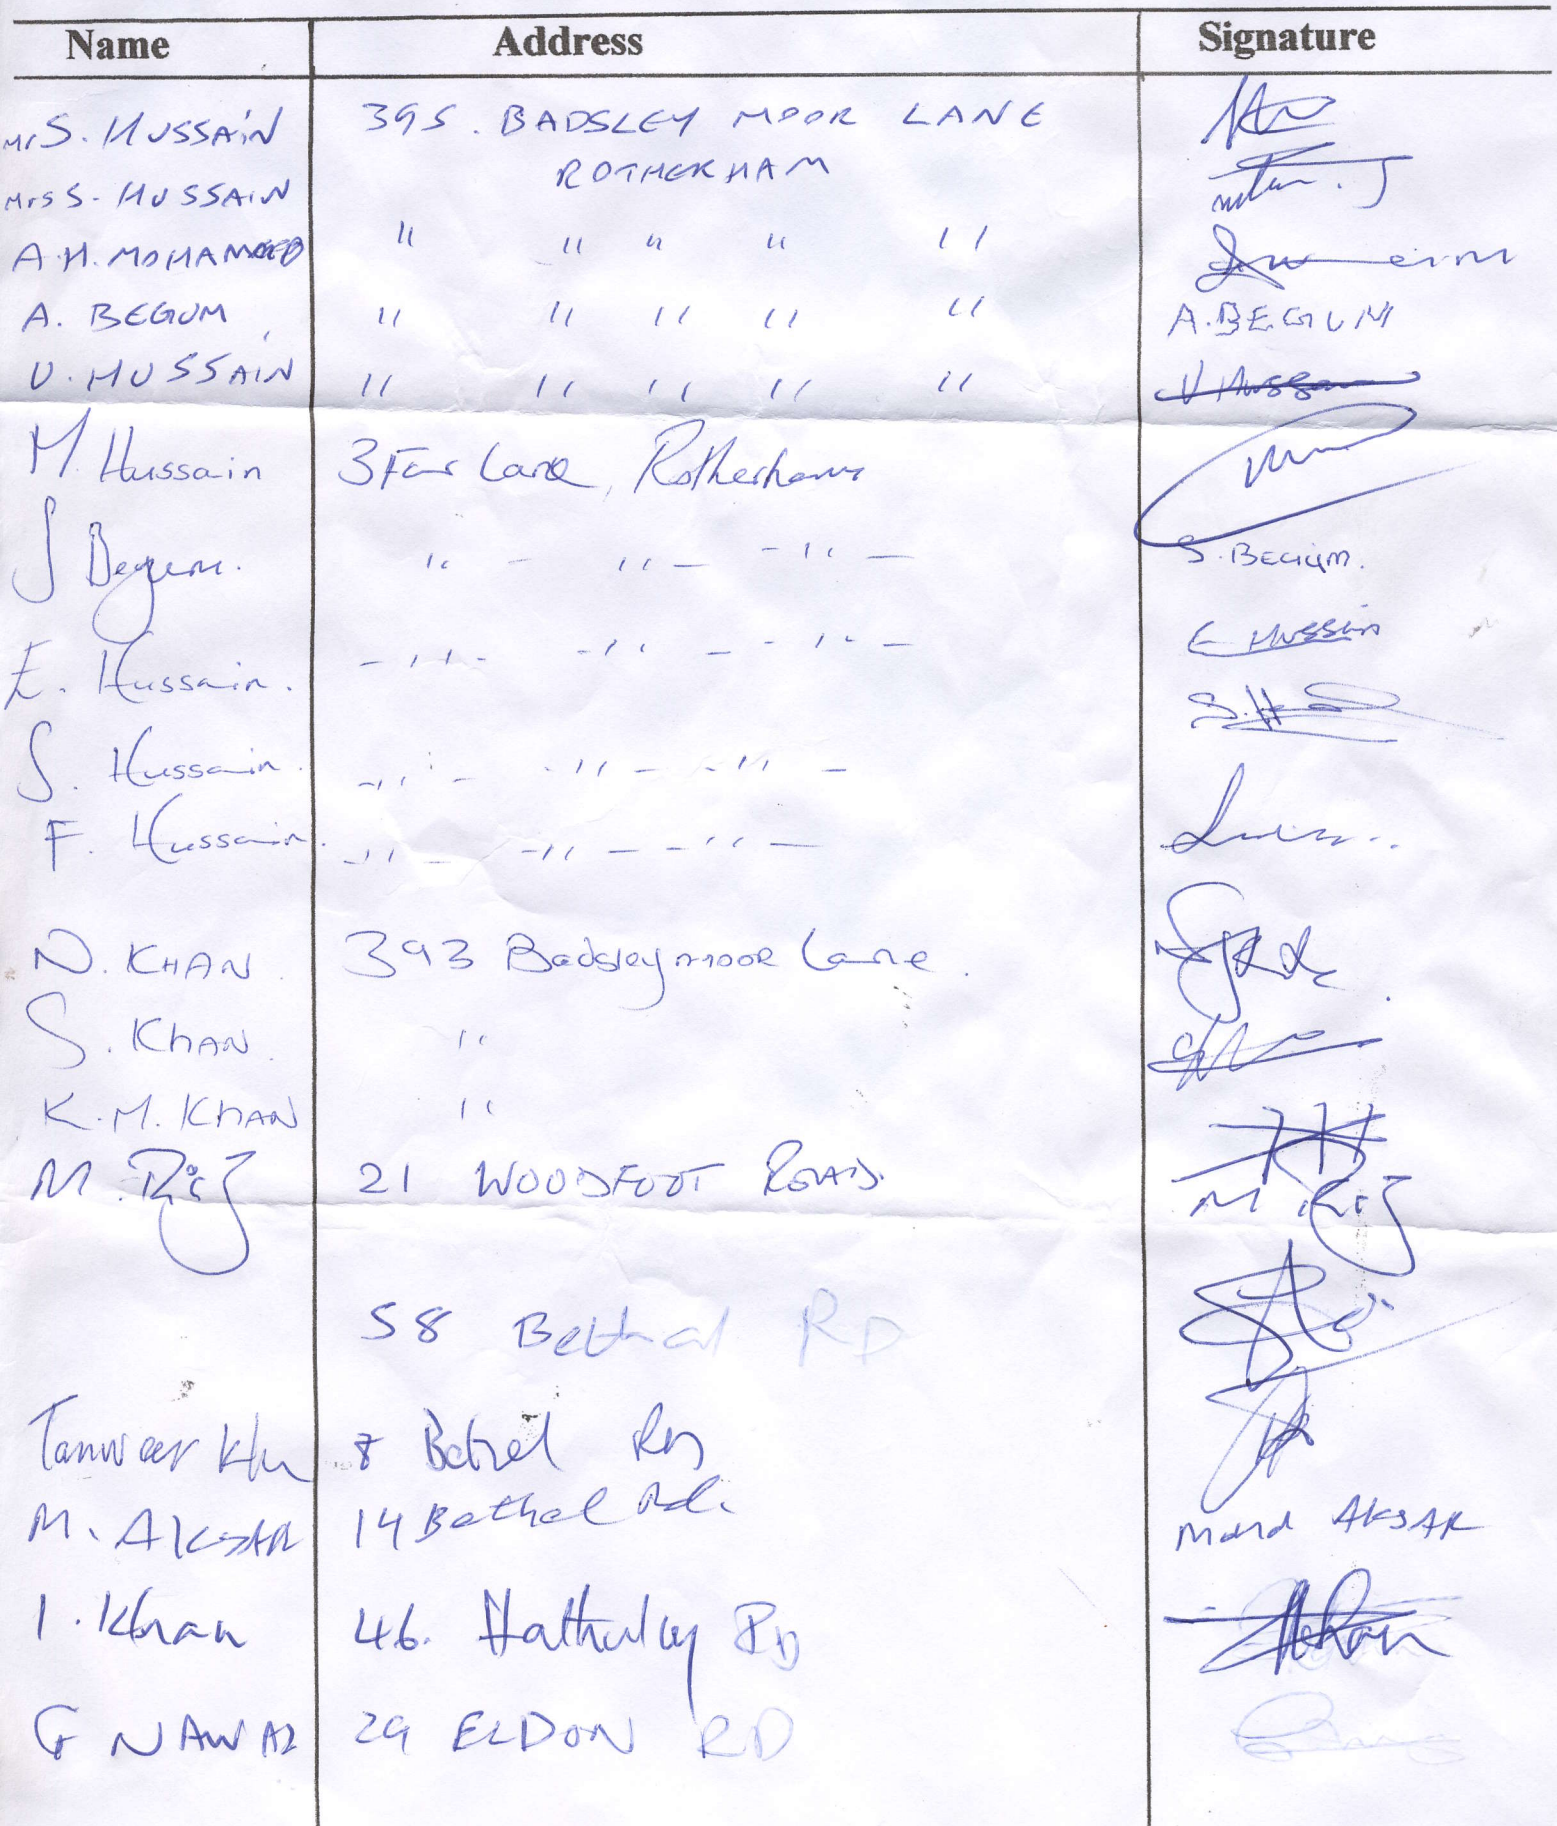 Name Address Signature
Mr S. HUSSAIN 395. BADSLEY MOOR LANE
ROTHERHAM
Mrs S. HUSSAIN
A.H. MOHAMMED " " " " "
A. BEGUM " " " " " A. BEGUM
U. HUSSAIN " " " " " U Hussain
M. Hussain 3 Far Lane, Rotherham
S Begum. " - " - - " - S. BEGUM.
E. Hussain. - " - - " - - " - E Hussain
S. Hussain. - " - - " - - " - S.H
F. Hussain. - " - - " - - " -
N. KHAN. 393 Badsley moor Lane.
S. KHAN. "
K.M. KHAN "
M. Riaz 21 WOODFOOT ROAD. M. Riaz
58 Bethal RD
Tanweer 8 Bethel RD
M. AKSAR 14 Bethel Rd. Mohd AKSAR
I. Khan 46. Hatherley RD
G NAWAZ 29 ELDON RD